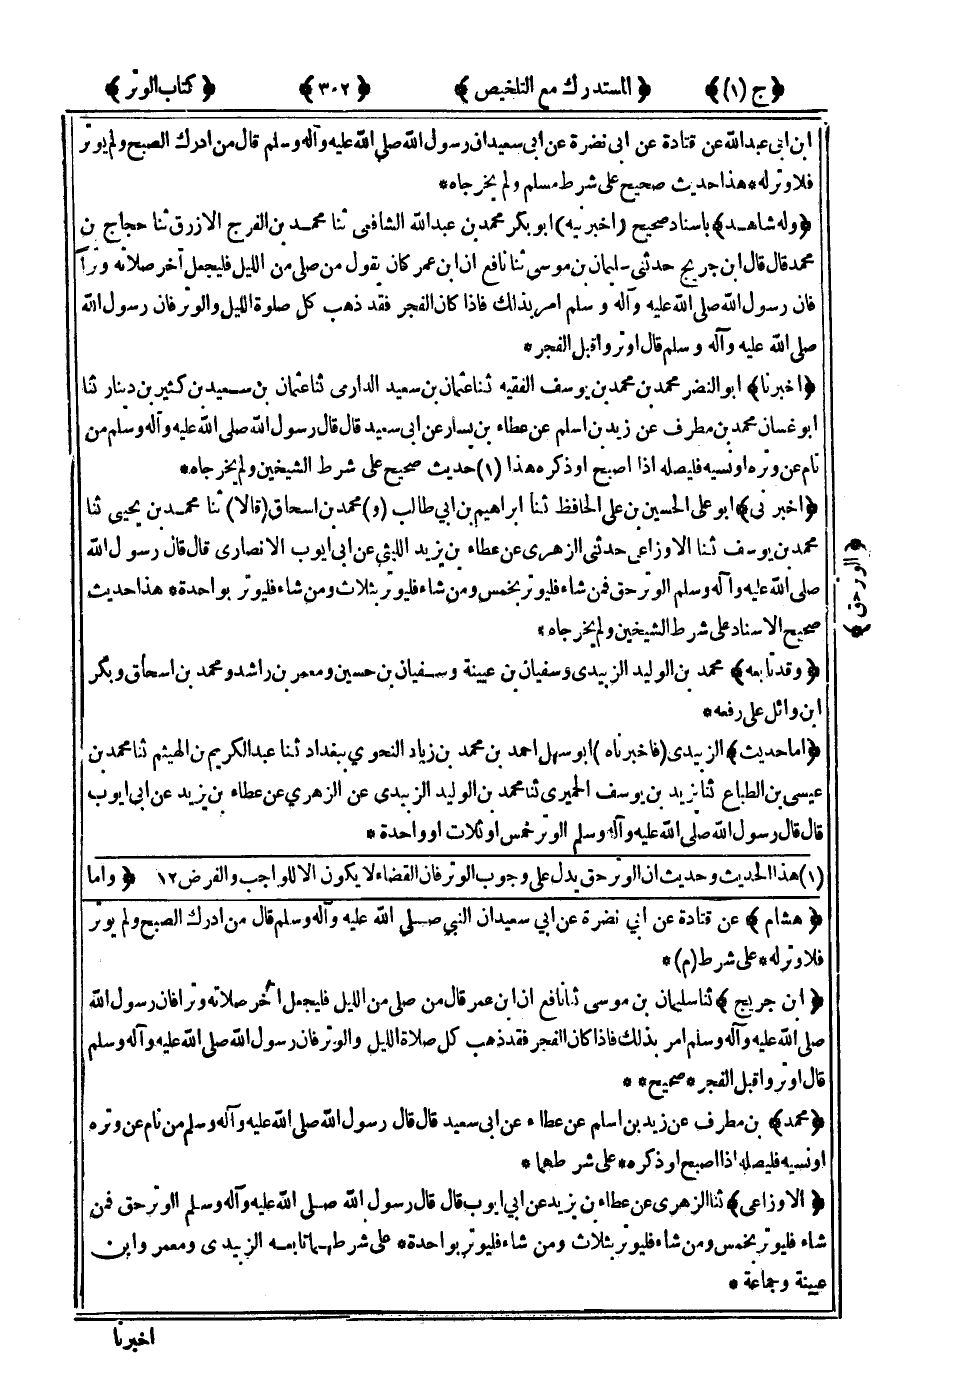 ﴿ج (١)﴾ ﴿المستدرك مع التلخيص﴾ ﴿٣٠٢﴾ ﴿كتاب الوتر﴾
ابن ابى عبد الله عن قتادة عن ابى نضرة عن ابى سعيد ان رسول الله صلى الله عليه وآله وسلم قال من ادرك الصبح ولم يوتر
فلا وتر له * هذا حديث صحيح على شرط مسلم ولم يخرجاه *
﴿وله شاهد﴾ باسناد صحيح (اخبرنيه) ابو بكر محمد بن عبد الله الشافعى ثنا محمد بن الفرج الازرق ثنا حجاج بن
محمد قال قال ابن جريج حدثنى سليمان بن موسى ثنا نافع ان ابن عمر كان يقول من صلى من الليل فليجعل آخر صلاته وترا
فان رسول الله صلى الله عليه وآله وسلم امر بذلك فاذا كان الفجر فقد ذهب كل صلوة الليل والوتر فان رسول الله
صلى الله عليه وآله وسلم قال اوتروا قبل الفجر *
﴿اخبرنا﴾ ابو النضر محمد بن محمد بن يوسف الفقيه ثنا عثمان بن سعيد الدارمى ثنا عثمان بن سعيد بن كثير بن دينار ثنا
ابو غسان محمد بن مطرف عن زيد بن اسلم عن عطاء بن يسار عن ابى سعيد قال قال رسول الله صلى الله عليه وآله وسلم من
نام عن وتره او نسيه فليصله اذا اصبح او ذكره هذا (١) حديث صحيح على شرط الشيخين ولم يخرجاه *
﴿اخبرنى﴾ ابو على الحسين بن على الحافظ ثنا ابراهيم بن ابى طالب (و) محمد بن اسحاق (قالا) ثنا محمد بن يحيى ثنا
محمد بن يوسف ثنا الاوزاعى حدثنى الزهرى عن عطاء بن يزيد الليثى عن ابى ايوب الانصارى قال قال رسول الله
صلى الله عليه وآله وسلم الوتر حق فمن شاء فليوتر بخمس ومن شاء فليوتر بثلاث ومن شاء فليوتر بواحدة * هذا حديث
صحيح الاسناد على شرط الشيخين ولم يخرجاه *
﴿الوتر حق﴾
﴿وقد تابعه﴾ محمد بن الوليد الزبيدى وسفيان بن عيينة وسفيان بن حسين ومعمر بن راشد ومحمد بن اسحاق وبكر
ابن وائل على رفعه *
﴿اما حديث﴾ الزبيدى (فاخبرناه) ابو سهل احمد بن محمد بن زياد النحوي ببغداد ثنا عبد الكريم بن الهيثم ثنا محمد بن
عيسى بن الطباع ثنا يزيد بن يوسف الحميرى ثنا محمد بن الوليد الزبيدى عن الزهري عن عطاء بن يزيد عن ابى ايوب
قال قال رسول الله صلى الله عليه وآله وسلم الوتر خمس او ثلاث او واحدة *
(١) هذا الحديث وحديث ان الوتر حق يدل على وجوب الوتر فان القضاء لا يكون الا للواجب والفرض ١٢ ﴿واما
﴿هشام﴾ عن قتادة عن ابي نضرة عن ابي سعيد ان النبي صلى الله عليه وآله وسلم قال من ادرك الصبح ولم يوتر
فلا وتر له * على شرط (م) *
﴿ابن جريج﴾ ثنا سليمان بن موسى ثنا نافع ان ابن عمر قال من صلى من الليل فليجعل آخر صلاته وترا فان رسول الله
صلى الله عليه وآله وسلم امر بذلك فاذا كان الفجر فقد ذهب كل صلاة الليل والوتر فان رسول الله صلى الله عليه وآله وسلم
قال اوتروا قبل الفجر * صحيح * *
﴿محمد﴾ بن مطرف عن زيد بن اسلم عن عطاء عن ابى سعيد قال قال رسول الله صلى الله عليه وآله وسلم من نام عن وتره
او نسيه فليصله اذا اصبح او ذكره * على شرطهما *
﴿الاوزاعى﴾ ثنا الزهرى عن عطاء بن يزيد عن ابي ايوب قال قال رسول الله صلى الله عليه وآله وسلم الوتر حق فمن
شاء فليوتر بخمس ومن شاء فليوتر بثلاث ومن شاء فليوتر بواحدة * على شرطهما تابعه الزبيدى ومعمر وابن
عيينة وجماعة *
اخبرنا